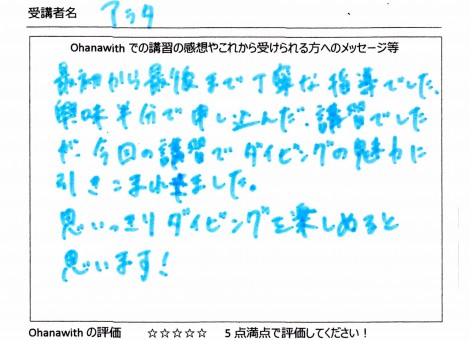 受講者名 アラタ
Ohanawith での講習の感想やこれから受けられる方へのメッセージ等
最初から最後まで丁寧な指導でした。
興味半分で申し込んだ、講習でした
が、今回の講習でダイビングの魅力に
引きこまれました。
思いっきりダイビングを楽しめると
思います!
Ohanawith の評価 ☆☆☆☆☆ 5 点満点で評価してください!